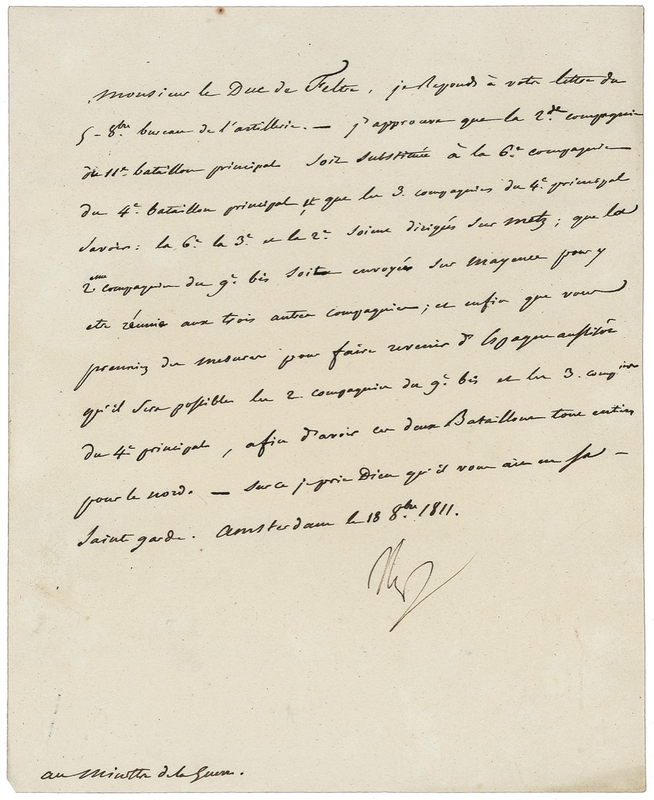 Monsieur le Duc de Feltre, je Reponds à votre lettre du
5 - 8bre bureau de l'artillerie. — j'approuve que la 2de compagnie
du 11e bataillon principal soit substituée à la 6e compagnie
du 4e bataillon principal et que les 3 compagnies du 4e principal
savoir: la 6e la 3e et la 2e soient dirigés sur Metz; que la
2eme compagnie du 9e bis soit envoyée sur Mayence pour y
etre réunie aux trois autres compagnies; et enfin que vous
preniez des mesures pour faire revenir d'Espagne aussitôt
qu'il sera possible les 2 compagnies du 9e bis et les 3 compies
du 4e principal, afin d'avoir ces deux Bataillons tout entiers
pour le nord. — sur ce je prie Dieu qu'il vous aie en sa —
Sainte garde. Amsterdam le 18 8bre 1811.
au Ministre de la Guerre.